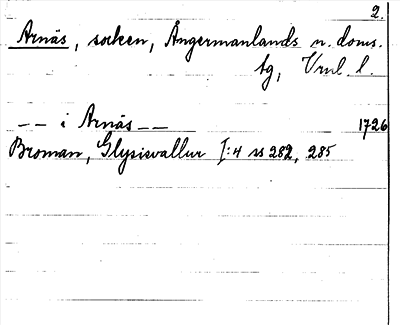 2.
Arnäs, socken, Ångermanlands n. doms.
tg, Vrnl. l.
-- i Arnäs -- 1726
Broman, Glysisvallur I:4 ss 282, 285